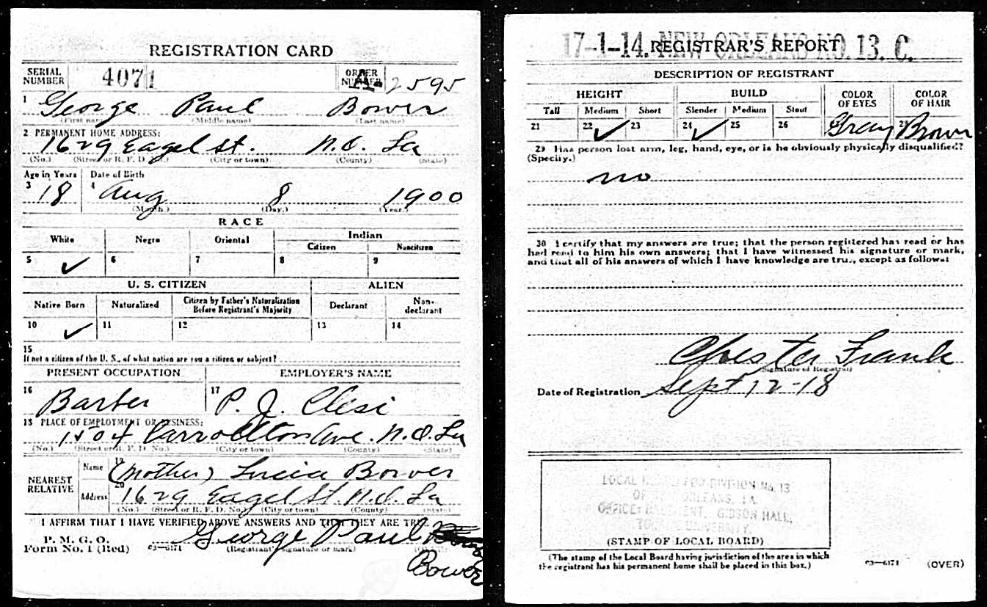 REGISTRATION CARD
SERIAL NUMBER 4071 ORDER NUMBER A 2595
1 George Paul Bower
(First name) (Middle name) (Last name)
2 PERMANENT HOME ADDRESS:
1629 Eagel St. N.O. La
(No.) (Street or R. F. D. No.) (City or town) (County) (State)
Age in Years Date of Birth
3 18 4 Aug 8 1900
(Month.) (Day.) (Year.)
RACE
White Negro Oriental Indian
Citizen Noncitizen
5 ✓ 6 7 8 9
U. S. CITIZEN ALIEN
Native Born Naturalized Citizen by Father's Naturalization Before Registrant's Majority Declarant Non-declarant
10 ✓ 11 12 13 14
15
If not a citizen of the U. S., of what nation are you a citizen or subject?
PRESENT OCCUPATION EMPLOYER'S NAME
16 Barber 17 P. J. Clesi
18 PLACE OF EMPLOYMENT OR BUSINESS:
1504 Carrollton Ave. N.O. La
(No.) (Street or R. F. D. No.) (City or town) (County) (State)
NEAREST RELATIVE
Name 19 (Mother) Bower
Address 20 1629 Eagel St. N.O. La
(No.) (Street or R. F. D. No.) (City or town) (County) (State)
I AFFIRM THAT I HAVE VERIFIED ABOVE ANSWERS AND THAT THEY ARE TRUE
P. M. G. O.
Form No. 1 (Red) 03—6171 George Paul
(Registrant's signature or mark)
Bower
17-1-14. NEW ORLEANS NO. 13. C.
REGISTRAR'S REPORT
DESCRIPTION OF REGISTRANT
HEIGHT BUILD COLOR OF EYES COLOR OF HAIR
Tall Medium Short Slender Medium Stout
21 22 ✓ 23 24 ✓ 25 26 Gray 28 Bown
29 Has person lost arm, leg, hand, eye, or is he obviously physically disqualified?
(Specify.)
no
30 I certify that my answers are true; that the person registered has read or has
had read to him his own answers; that I have witnessed his signature or mark,
and that all of his answers of which I have knowledge are true, except as follows:
Chester Frank
(Signature of Registrar)
Date of Registration Sept 12-18
LOCAL BOARD FOR DIVISION No. 13
OF NEW ORLEANS, LA.
OFFICE: BASEMENT, GIBSON HALL,
TULANE UNIVERSITY.
(STAMP OF LOCAL BOARD)
(The stamp of the Local Board having jurisdiction of the area in which
the registrant has his permanent home shall be placed in this box.)
03—6171 (OVER)